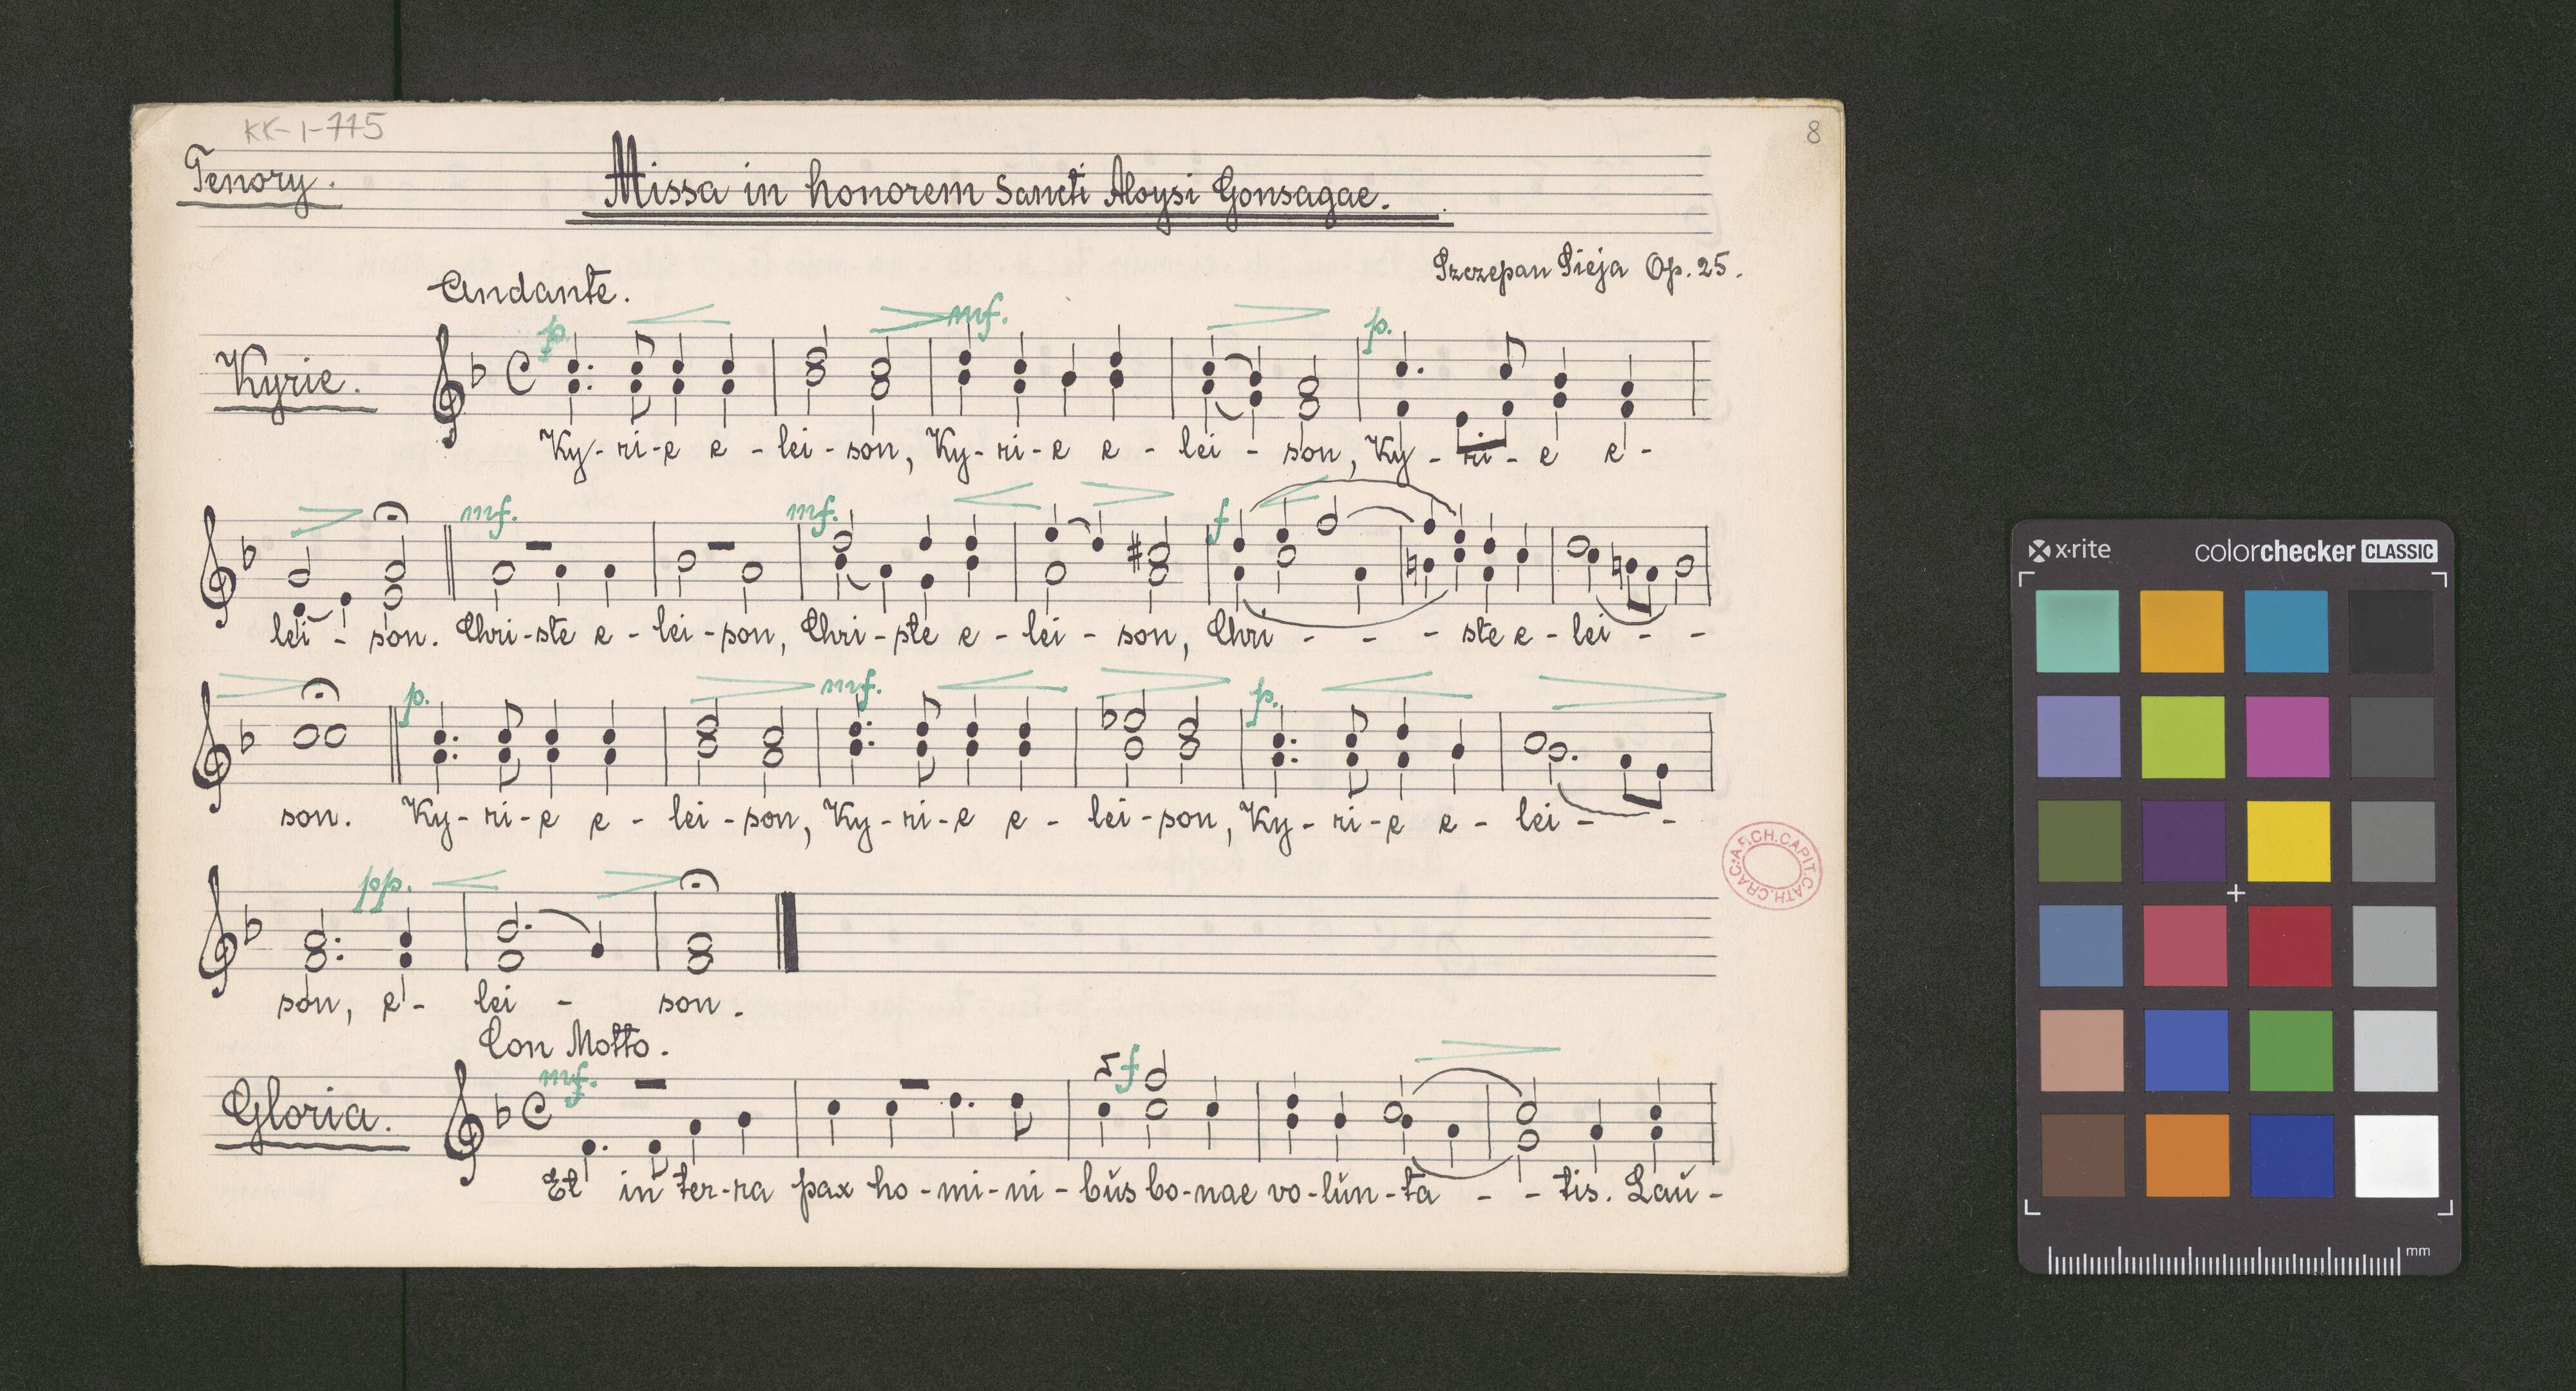 KK-1-775
8
Tenory.
Missa in honorem Sancti Aloysi Gonsagae.
Szczepan Sieja Op. 25.
Andante.
p. mf. p.
Kyrie.
Ky-ri-e e-lei-son, Ky-ri-e e-lei-son, Ky-ri-e e-
mf. mf. f
lei-son. Chri-ste e-lei-son, Chri-ste e-lei-son, Chri---ste e-lei--
p. mf. p.
son. Ky-ri-e e-lei-son, Ky-ri-e e-lei-son, Ky-ri-e e-lei--
pp.
son, e-lei-son.
ARCH.CAPIT.CATH.CRAC:
Con Motto.
mf. f
Gloria.
Et in ter-ra pax ho-mi-ni-bŭs bo-nae vo-lŭn-ta--tis. Laŭ-
x·rite
colorchecker CLASSIC
mm